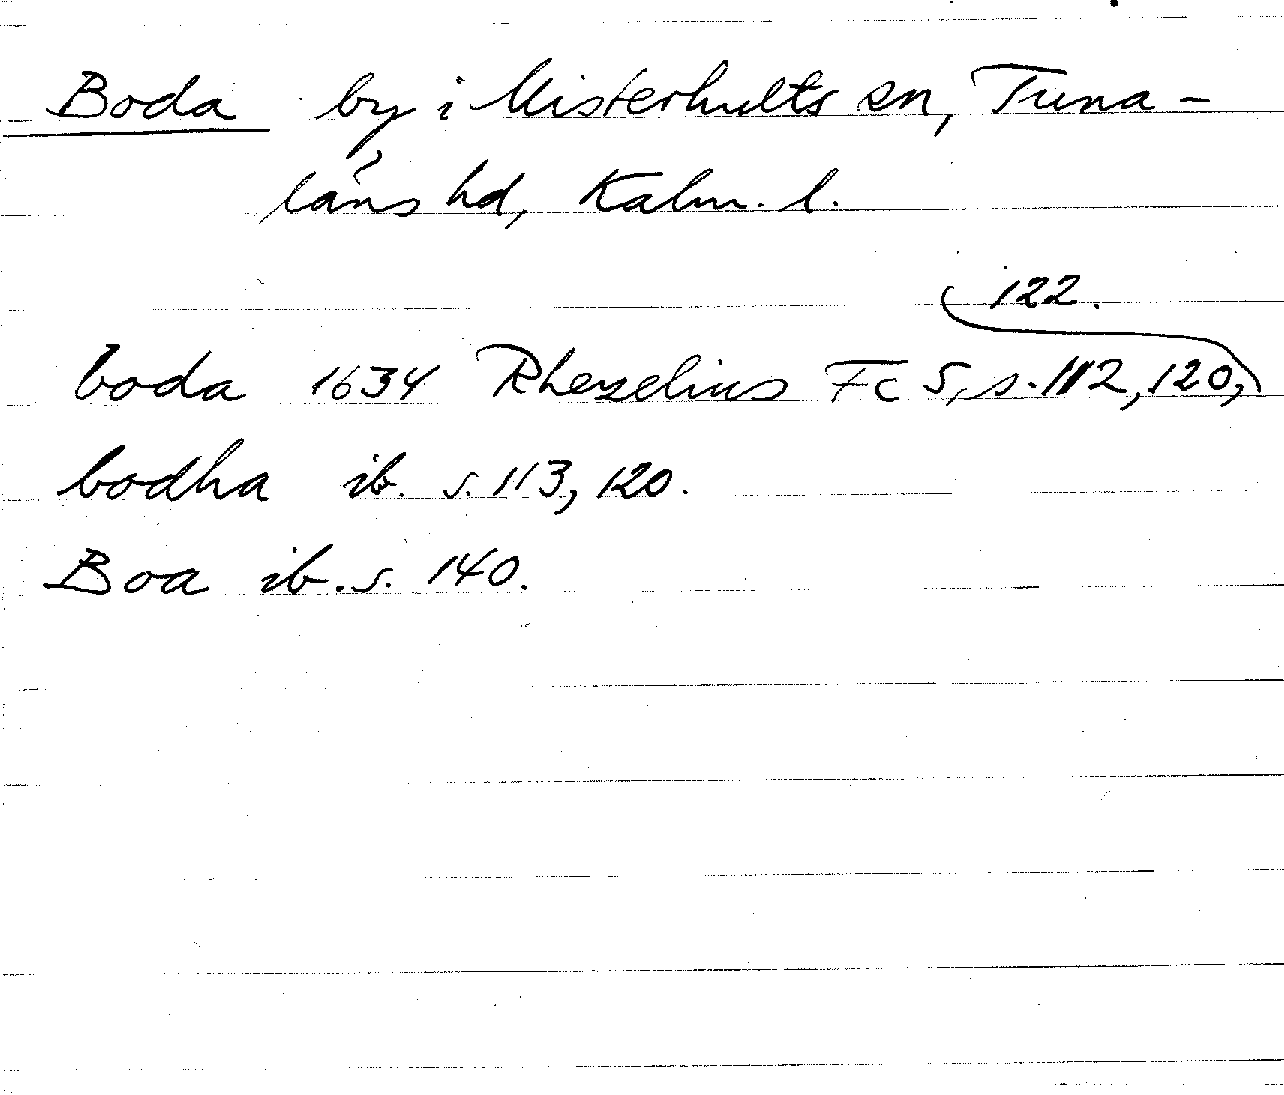 Boda by i Misterhults sn, Tuna-
läns hd, Kalm. l.
boda 1634 Rhezelius Fc 5, s. 112, 120,
122.
bodha ib. s. 113, 120.
Boa ib. s. 140.